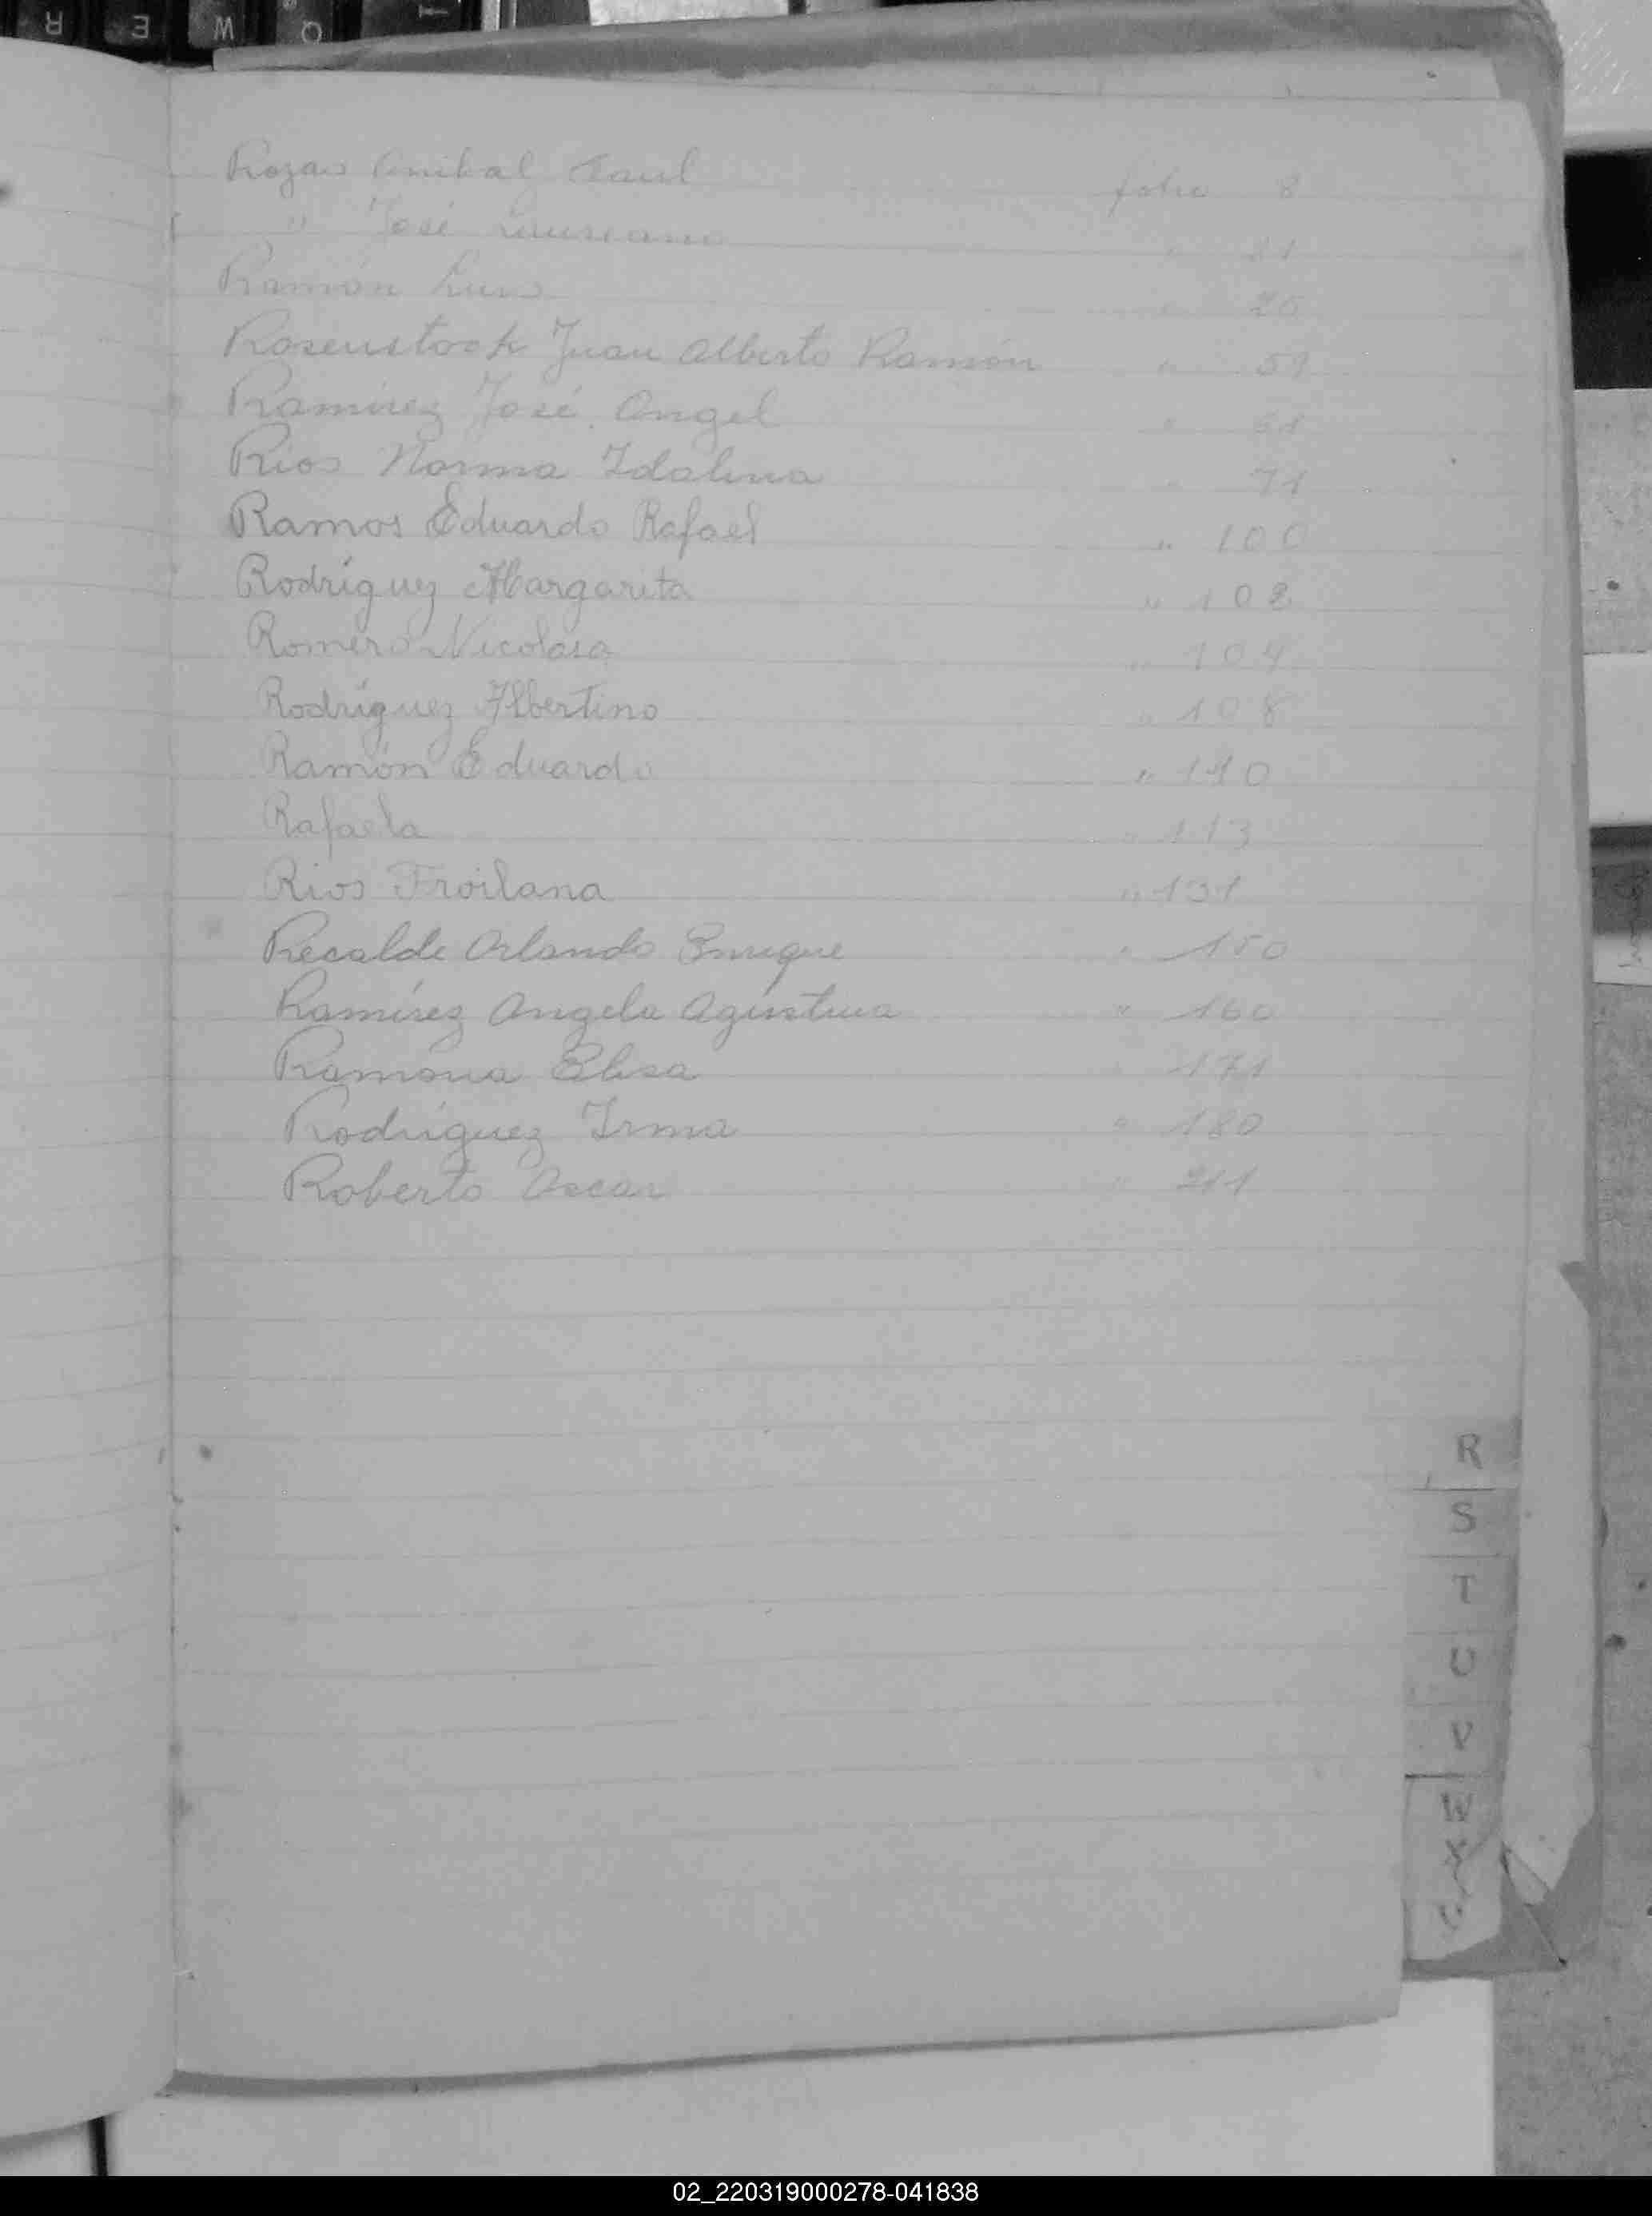 Rozas Anibal Raul folio 8
" José Laureano " 21
Ramón Luis " 26
Rosenstock Juan Alberto Ramón " 59
Ramirez José Angel " 61
Rios Norma Idalina " 71
Ramos Eduardo Rafael " 100
Rodríguez Margarita " 102
Romero Nicolasa " 104
Rodríguez Albertino " 108
Ramón Eduardo " 110
Rafaela " 113
Rios Froilana " 131
Recalde Orlando Enrique " 150
Ramírez Angela Agustina " 160
Ramona Elisa " 171
Rodríguez Irma " 180
Roberto Oscar " 211
R
S
T
U
V
W
X
Y
02_220319000278-041838